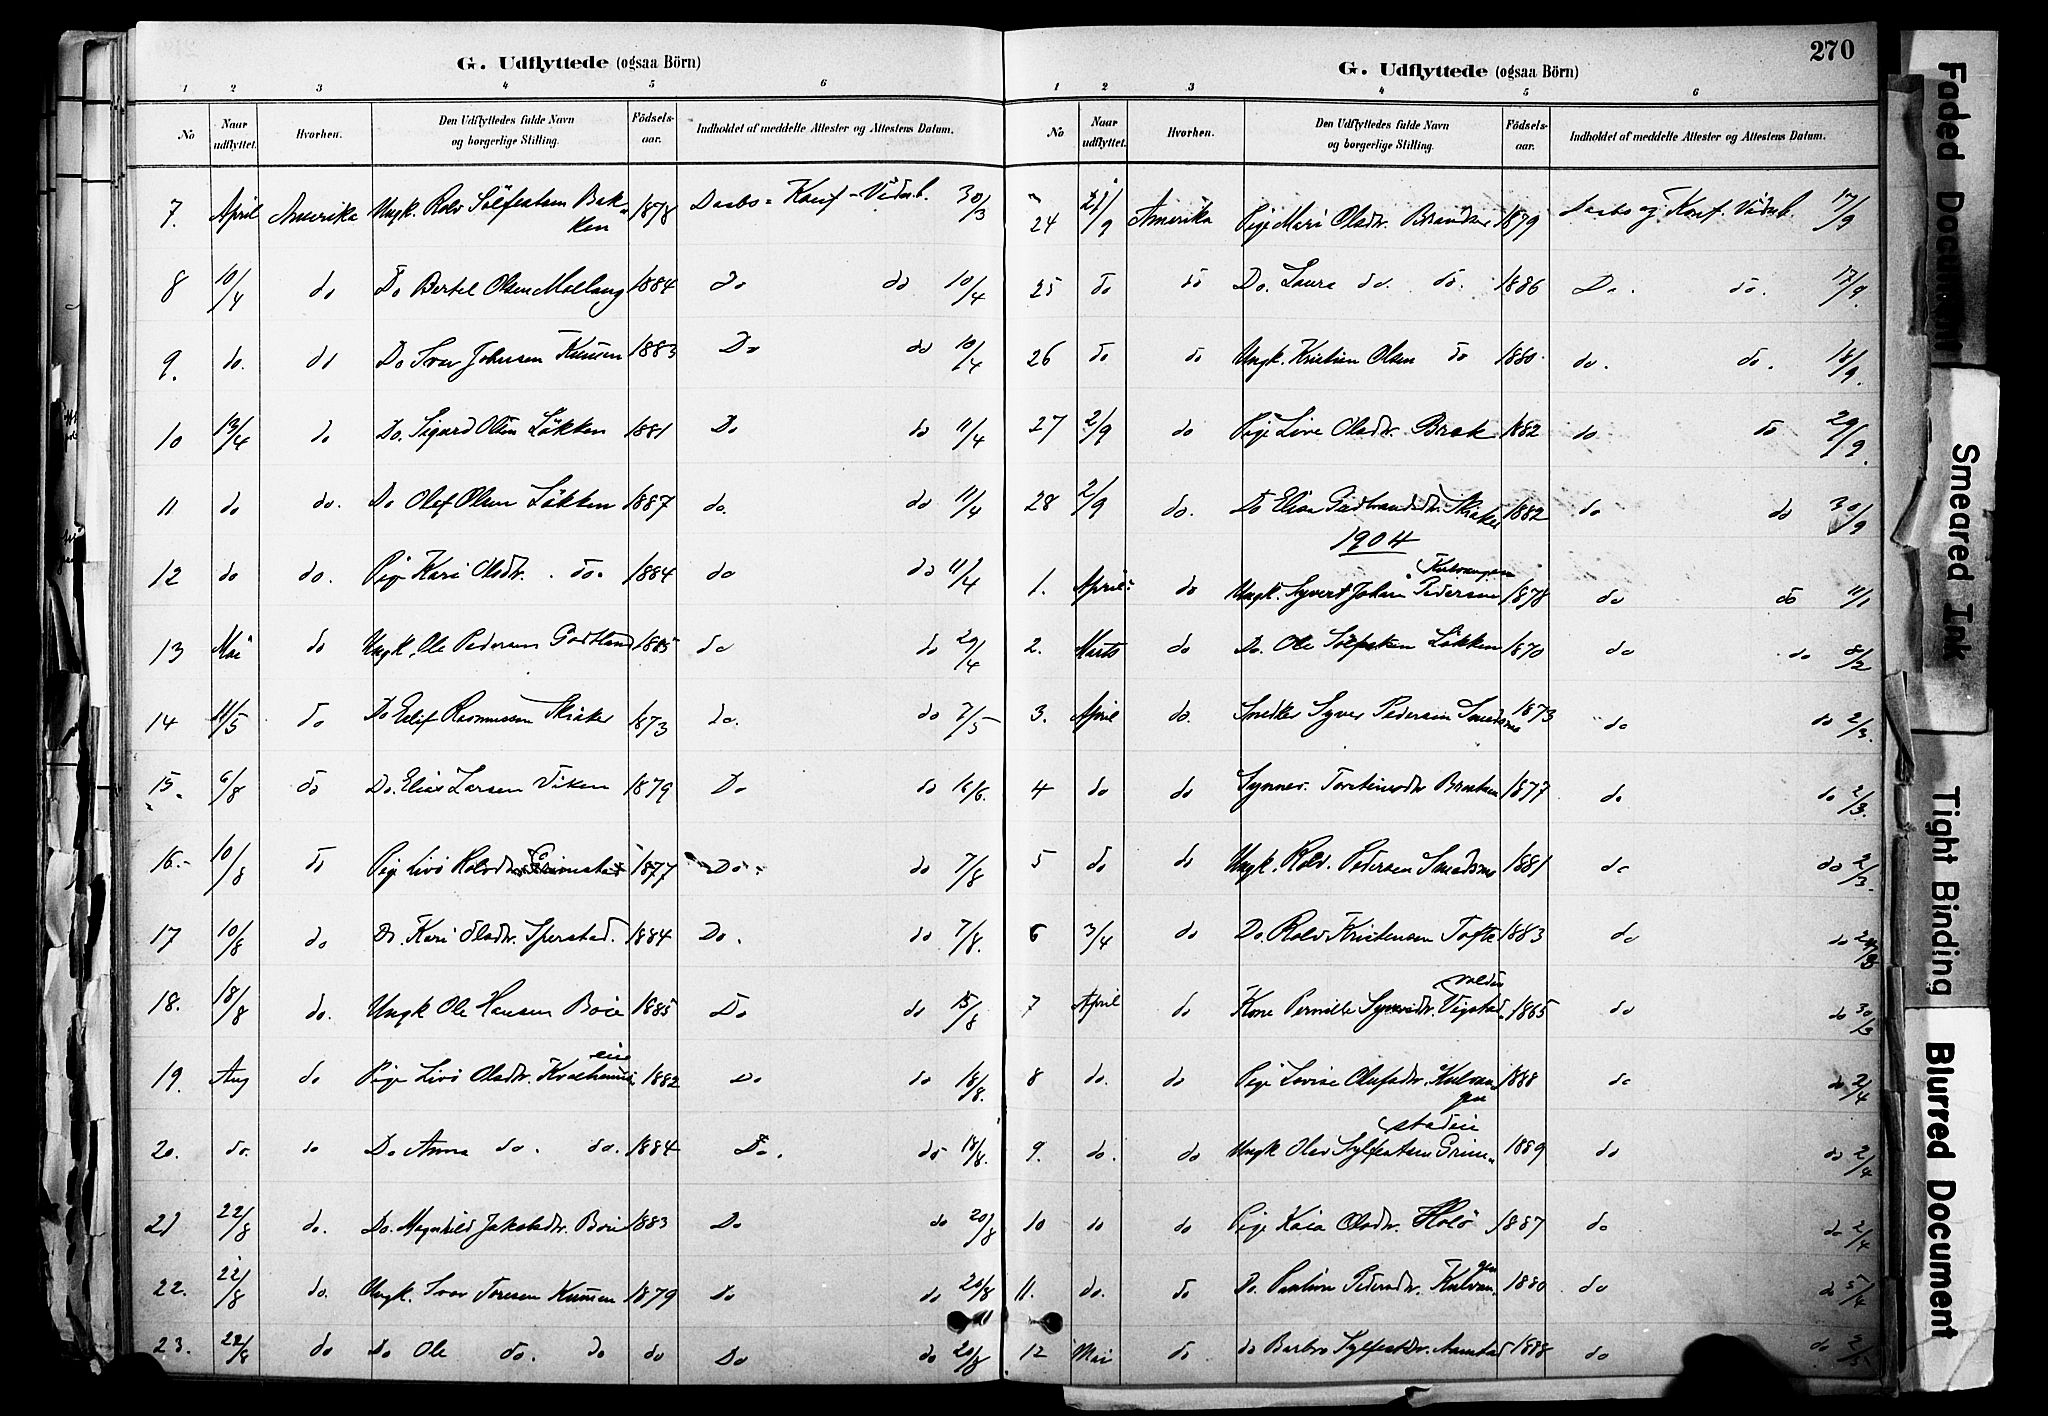 G. Udflyttede (ogsaa Börn)
1 2 3 4 5 6
No Naar udflyttet. Hvorhen. Den Udflyttedes fulde Navn og borgerlige Stilling. Födsels-aar. Indholdet af meddelte Attester og Attestens Datum.
7. April Amerika Ungk. Rolv Sölfestsen Bak- 1878 Daabs- Konf- Vidnb. 30/3
ken
8 10/4 do Do Bertel Olsen 1884 Do do 10/4
9. do. do Do Ivar Johnsen 1883 Do do 10/4
10 13/4 do Do. Sigurd Olsen Lökken 1881 Do do 11/4
11 do do. Do Olef Olsen Lökken 1887 do. do 11/4
12 do do. Pige Kari Olsdtr. do. 1884 do do 11/4
13 Mai do Ungk. Ole Pedersen 1885 do do 29/4
14 11/5 do Do Eilif Rasmussen Skiaker 1873 do. do 7/5
15. 6/8 do Do. Elias Larsen Viken 1879 Do do 16/6.
16. 10/8 do Pige Livö Rolvdtr. Grimstad 1877 Do. do 7/8
17 10/8 do Do. Kari Olsdtr. Sperstad. 1884 Do. do 7/8.
18. 18/8 do. Ungk Ole Hansen Böie 1885 Do do 15/8
eie
19. Aug do Pige Livö Olsdtr. 1882 Do do 18/8.
20. do. do Do Anna do. do. 1884 Do. do 18/8.
21 22/8 do. Do. Magnhild Jakobsdtr. Böie 1883 Do do 20/8
22. 22/8 do. Ungk. Ivar Toresen 1879 Do do 20/8
23. 22/8 do Do Ole do. do do Do do 20/8
270
G. Udflyttede (ogsaa Börn)
1 2 3 4 5 6
No Naar udflyttet. Hvorhen. Den Udflyttedes fulde Navn og borgerlige Stilling. Födsels-aar. Indholdet af meddelte Attester og Attestens Datum.
24 21/9 Amerika Pige Mari Olsdtr. 1879 Daabs og Konf. Vidnb. 17/9
25 do do Do. Laura do. do. 1886 Do. do. 17/9.
26 do do Ungk. Kristian Olsen do 1880. do. do. 18/9.
27 2/9 do Pige Live Olsdtr. Bræk 1882 do do 29/9.
28 2/9 do. Do Elise Gudbrandsdtr. Skiaker 1882 do do 30/9
1904
Kulvangen
1. April. do Ungk. Syvert Johan Pedersen 1878 do do 11/1
2. Marts do Do. Ole Sölfestsen Lökken 1870 do do 8/2
3. April do. Snedker Syver Pedersen Smedsmo 1873 do do 2/3.
4 do do Synnev. Torsteinsdtr 1877 do do 2/3.
5 do do Ungk. Rolv. Pedersen Smedsmo 1881 do do 2/3.
6 3/4 do Do. Rolv Kristensen Tofte 1883 do do
7 April do Kone Pernille Vigstad 1865 do do 30/3
8 do. do Pige Lovise Olufsdtr. Kulvan 1888 do do 2/4
gen
stadeie
9. do. do Ungk Olav Sylfestsen Grim- 1889 do do 2/4
10 do do Pige Kaia Olsdtr. Holö 1887 do do 2/4
gen
11. do. do Do. Pauline Pedersdtr. Kulvan 1880 do do 5/4
12 Mai do do Barbro Sylfestdtr. 1888 do do 2/5
Faded Document
Smeared Ink
Tight Binding
Blurred Document